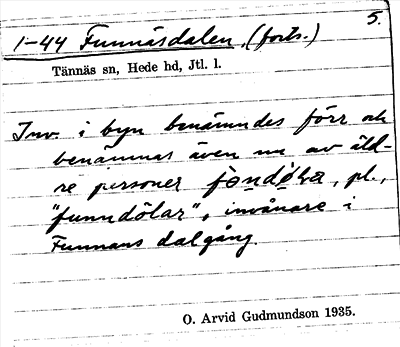 5.
1-44 Funnäsdalen, (forts.)
Tännäs sn, Hede hd, Jtl. l.
Inv. i byn benämndes förr och
benämnas även nu av äld-
re personer , pl.,
"funndölar", invånare i
Funnans dalgång.
O. Arvid Gudmundson 1935.